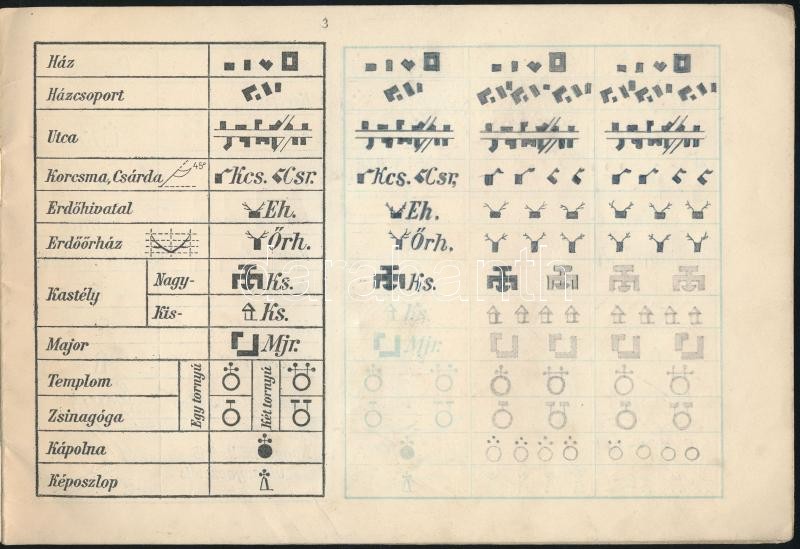 3
Ház
Házcsoport
Utca
Korcsma, Csárda 45° Kcs. Csr. Kcs. Csr,
Erdőhivatal Eh. Eh.
Erdőőrház Őrh. Őrh.
Kastély Nagy- Ks. Ks.
Kis- Ks. Ks.
Major Mjr. Mjr.
Templom Egy tornyú Két tornyú
Zsinagóga
Kápolna
Képoszlop
darabanth